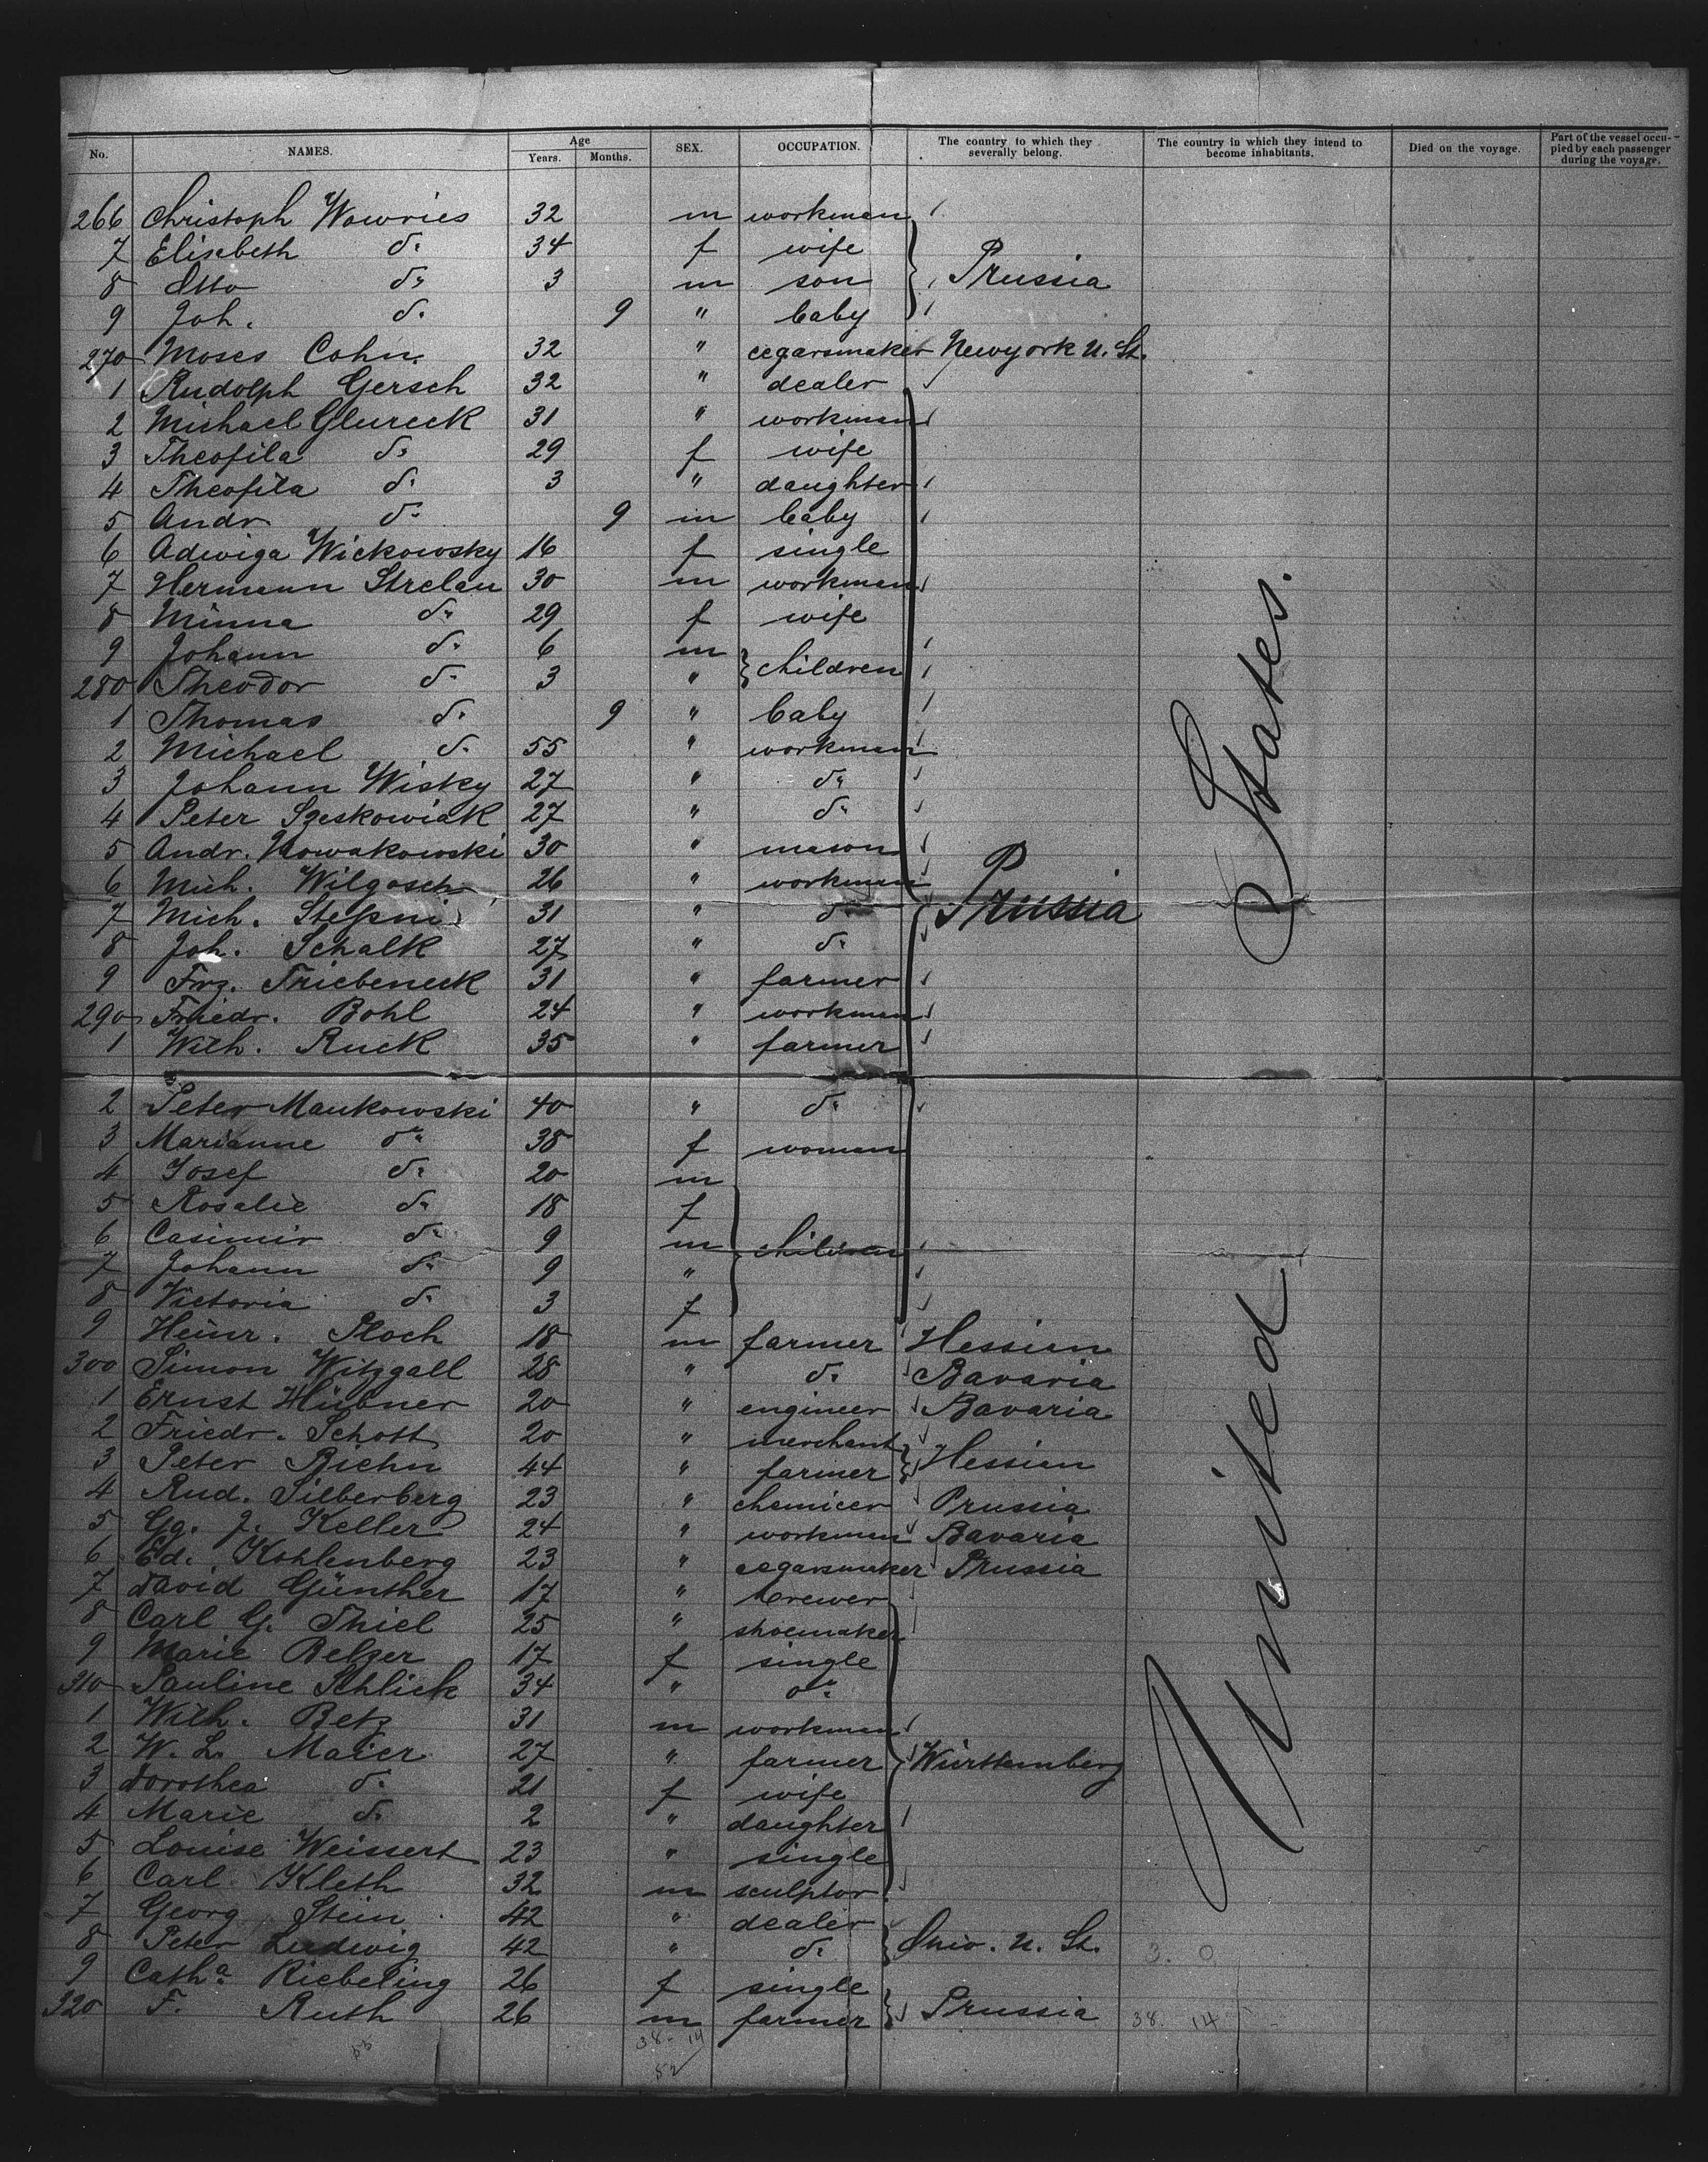 No. NAMES. Age Years. Months. SEX. OCCUPATION. The country to which they severally belong. The country in which they intend to become inhabitants. Died on the voyage. Part of the vessel occupied by each passenger during the voyage.
266 Christoph Wowries 32 m workman
7 Elisebeth do 34 f wife
8 Otto do 3 m son Prussia
9 Joh. do 9 " baby
270 Moses Cohn 32 " cegarsmaker Newyork U. St.
1 Rudolph Gersch 32 " dealer
2 Michael Glureck 31 " workman
3 Theofila do 29 f wife
4 Theofila do 3 " daughter
5 Andr. do 9 m baby
6 Adwiga Wickowsky 16 f single
7 Hermann Strelau 30 m workman
8 Minna do 29 f wife
9 Johann do 6 m children
280 Theodor do 3 "
1 Thomas do 9 " baby
2 Michael do 55 " workman
3 Johann Wisky 27 " do
4 Peter Szeskowiak 27 " do
5 Andr. Nowakowski 30 " mason
6 Mich. Wilgosch 26 " workman
7 Mich. Steßni 31 " do Prussia
8 Joh. Schalk 27 " do
9 Frz. Triebeneck 31 " farmer
290 Friedr. Bohl 24 " workman
1 Wilh. Ruck 35 " farmer
2 Peter Mankowski 40 " do
3 Marianne do 38 f woman
4 Josef do 20 m
5 Rosalie do 18 f
6 Casimir do 9 m children
7 Johann do 9 "
8 Victoria do 3 f
9 Heinr. Ploch 18 m farmer Hessian
300 Simon Witzgall 28 " do Bavaria
1 Ernst Hübner 20 " engineer Bavaria
2 Friedr. Schott 20 " merchant Hessian
3 Peter Biehn 44 " farmer
4 Rud. Silberberg 23 " chemicer Prussia
5 Gg. J. Keller 24 " workman Bavaria
6 Ed. Kohlenberg 23 " cegarsmaker Prussia
7 David Günther 17 " brewer
8 Carl G. Thiel 25 " shoemaker
9 Marie Belzer 17 f single
310 Pauline Schlick 34 " do
1 Wilh. Betz 31 m workman
2 W. L. Maier 27 " farmer Württemberg
3 Dorothea do 21 f wife
4 Marie do 2 " daughter
5 Louise Weissert 23 " single
6 Carl Kleth 32 m sculptor
7 Georg Stein 42 " dealer
8 Peter Ludwig 42 " do Ohio. U. St. 3. 0
9 Catha Riebeling 26 f single
320 F. Ruth 26 m farmer Prussia 38. 14
38 - 14
52
United States.